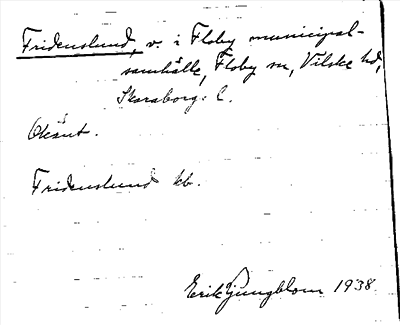 Fridenslund, v. i Floby municipal-
samhälle, Floby sn, Vilske hd,
Skaraborgs l.
Okänt.
Fridenslund kb.
Erik Ljungblom 1938